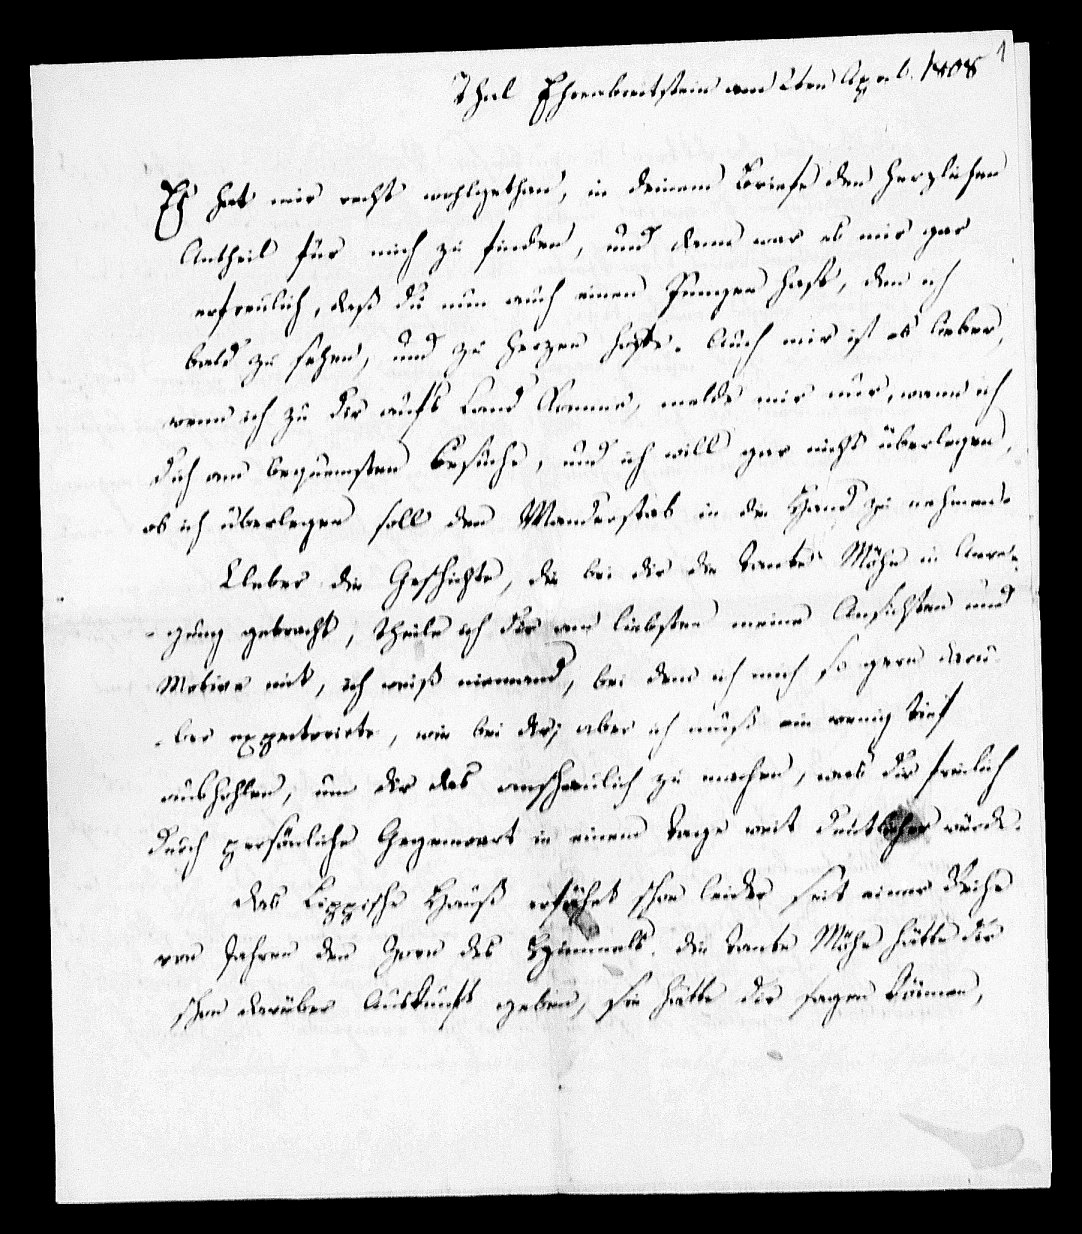 1
Thal Ehrenbreitstein am 2ten Apr. 1808
Es hat mir recht wohlgethan, in deinem Briefe den herzlichen
Antheil für mich zu finden, und dann war es mir gar
erfreulich, daß du nun auch einen Jungen hast, den ich
bald zu sehen, und zu herzen hoffe. Auch mir ist es lieber,
wenn ich zu dir aufs Land komme, melde mir nur, wann ich
dich am bequemsten besuche, und ich will gar nicht überlegen,
ob ich überlegen soll den Wanderstab in die Hand zu nehmen.
Ueber die Geschichte, die bei dir die Tante Möhn in Anre-
-gung gebracht, theile ich dir am liebsten meine Ansichten und
Motive mit, ich weiß niemand, bei dem ich mich so gern darü-
-ber expectorirte, wie bei dir; aber ich muß ein wenig tief
aushohlen, um dir das anschaulich zu machen, was dir freilich
durch persönliche Gegenwart in einem Tage weit deutlicher würde.
Das Lippische Hauß erfährt schon leider seit einer Reihe
von Jahren den Zorn des Himmels. die Tante Möhn hätte dir
schon darüber Auskunft geben, sie hätte dir sagen können,